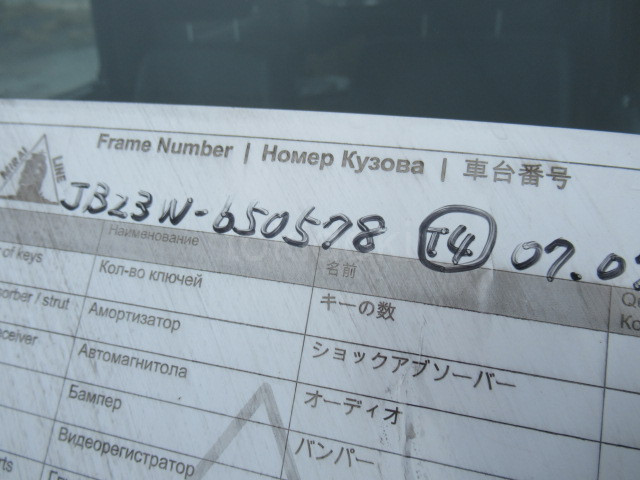 MIRAI LINE
Frame Number | Номер Кузова | 車台番号
JB23W-650578 T4 07.0
Наименование 名前
of keys Кол-во ключей キーの数
sorber / strut Амортизатор ショックアブソーバー
eceiver Автомагнитола オーディオ
Бампер バンパー
Видеорегистратор
rts